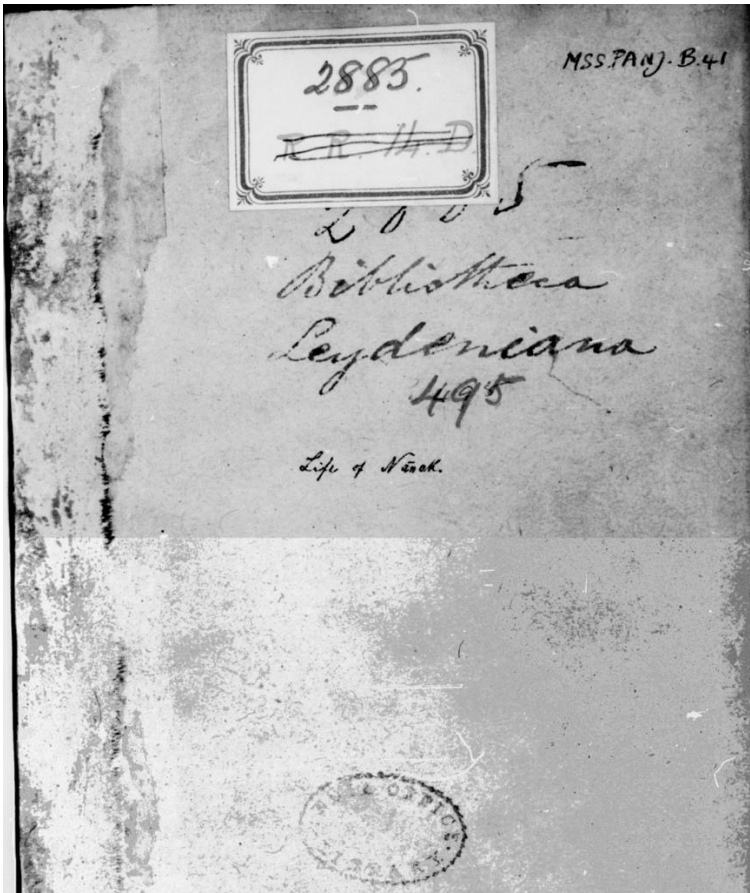 MSS.PANJ.B.41
2885.
R R. 14. D
2885
Bibliotheca
Leydeniana
495
Life of Nānak.
INDIA OFFICE
LIBRARY